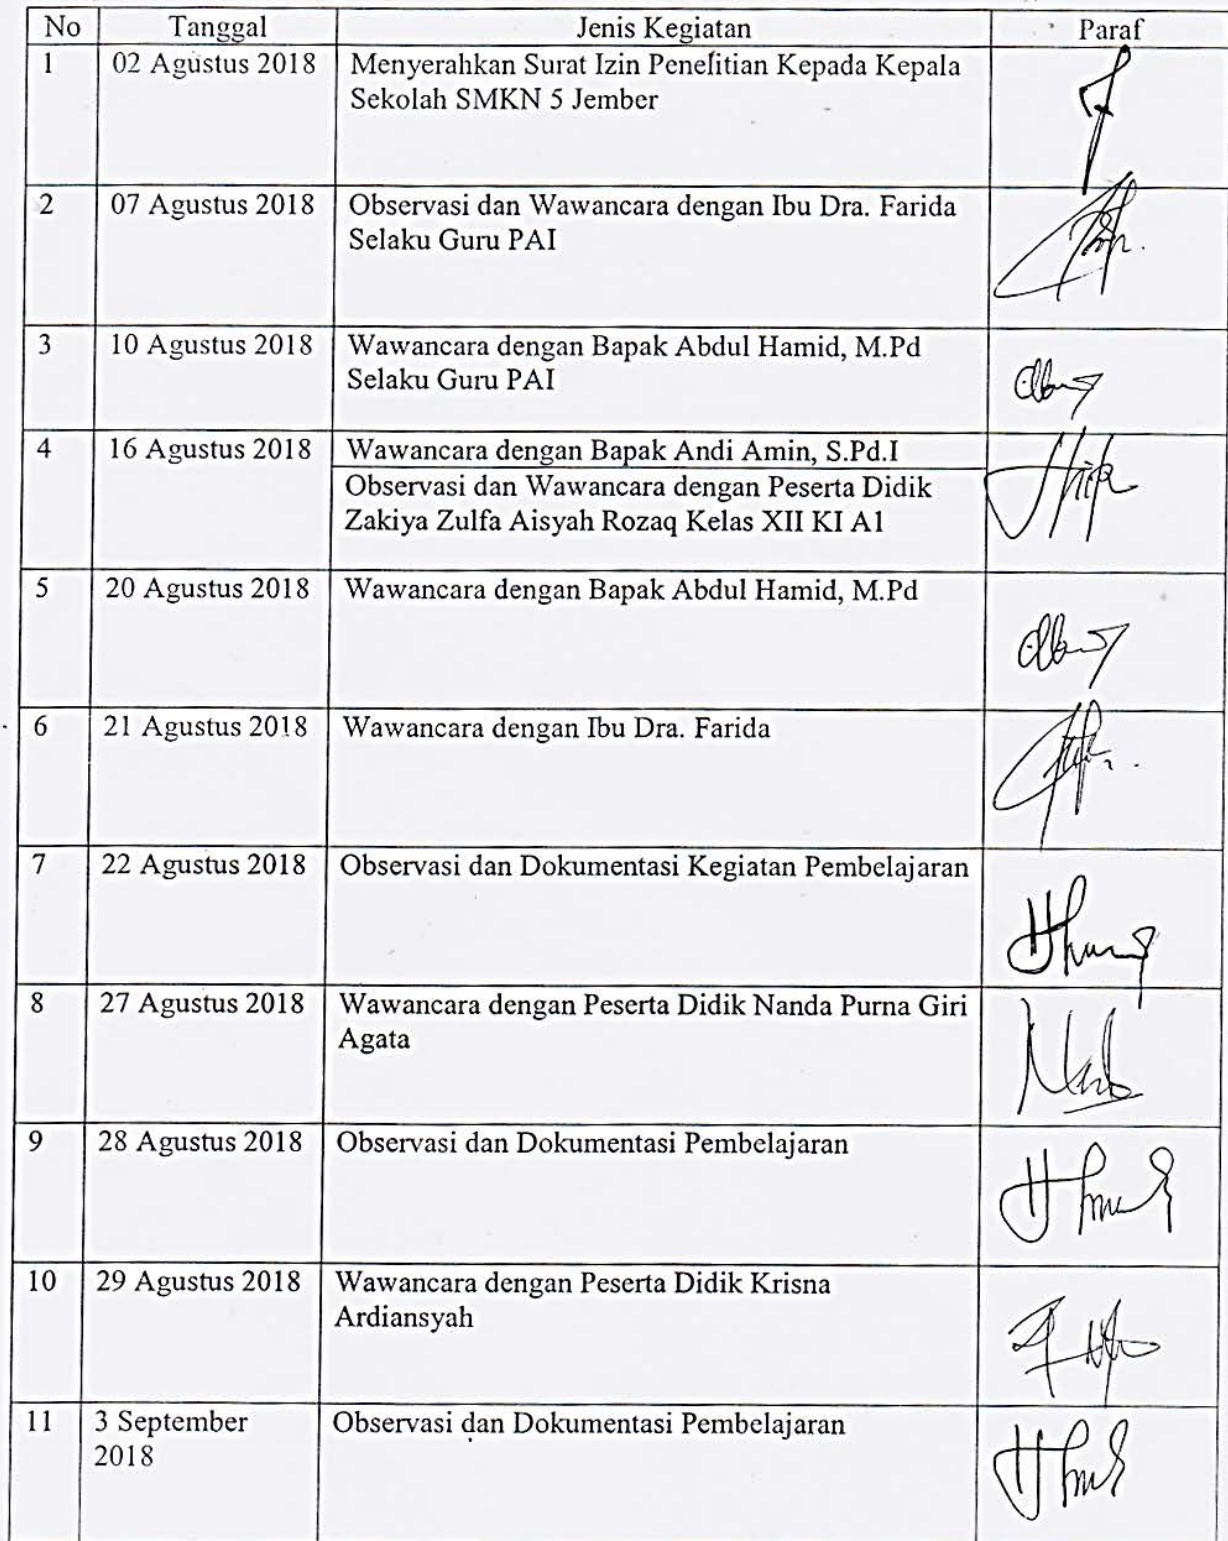 No Tanggal Jenis Kegiatan Paraf
1 02 Agustus 2018 Menyerahkan Surat Izin Penelitian Kepada Kepala
Sekolah SMKN 5 Jember
2 07 Agustus 2018 Observasi dan Wawancara dengan Ibu Dra. Farida
Selaku Guru PAI
3 10 Agustus 2018 Wawancara dengan Bapak Abdul Hamid, M.Pd
Selaku Guru PAI
4 16 Agustus 2018 Wawancara dengan Bapak Andi Amin, S.Pd.I
Observasi dan Wawancara dengan Peserta Didik
Zakiya Zulfa Aisyah Rozaq Kelas XII KI A1
5 20 Agustus 2018 Wawancara dengan Bapak Abdul Hamid, M.Pd
6 21 Agustus 2018 Wawancara dengan Ibu Dra. Farida
7 22 Agustus 2018 Observasi dan Dokumentasi Kegiatan Pembelajaran
8 27 Agustus 2018 Wawancara dengan Peserta Didik Nanda Purna Giri
Agata
9 28 Agustus 2018 Observasi dan Dokumentasi Pembelajaran
10 29 Agustus 2018 Wawancara dengan Peserta Didik Krisna
Ardiansyah
11 3 September Observasi dan Dokumentasi Pembelajaran
2018